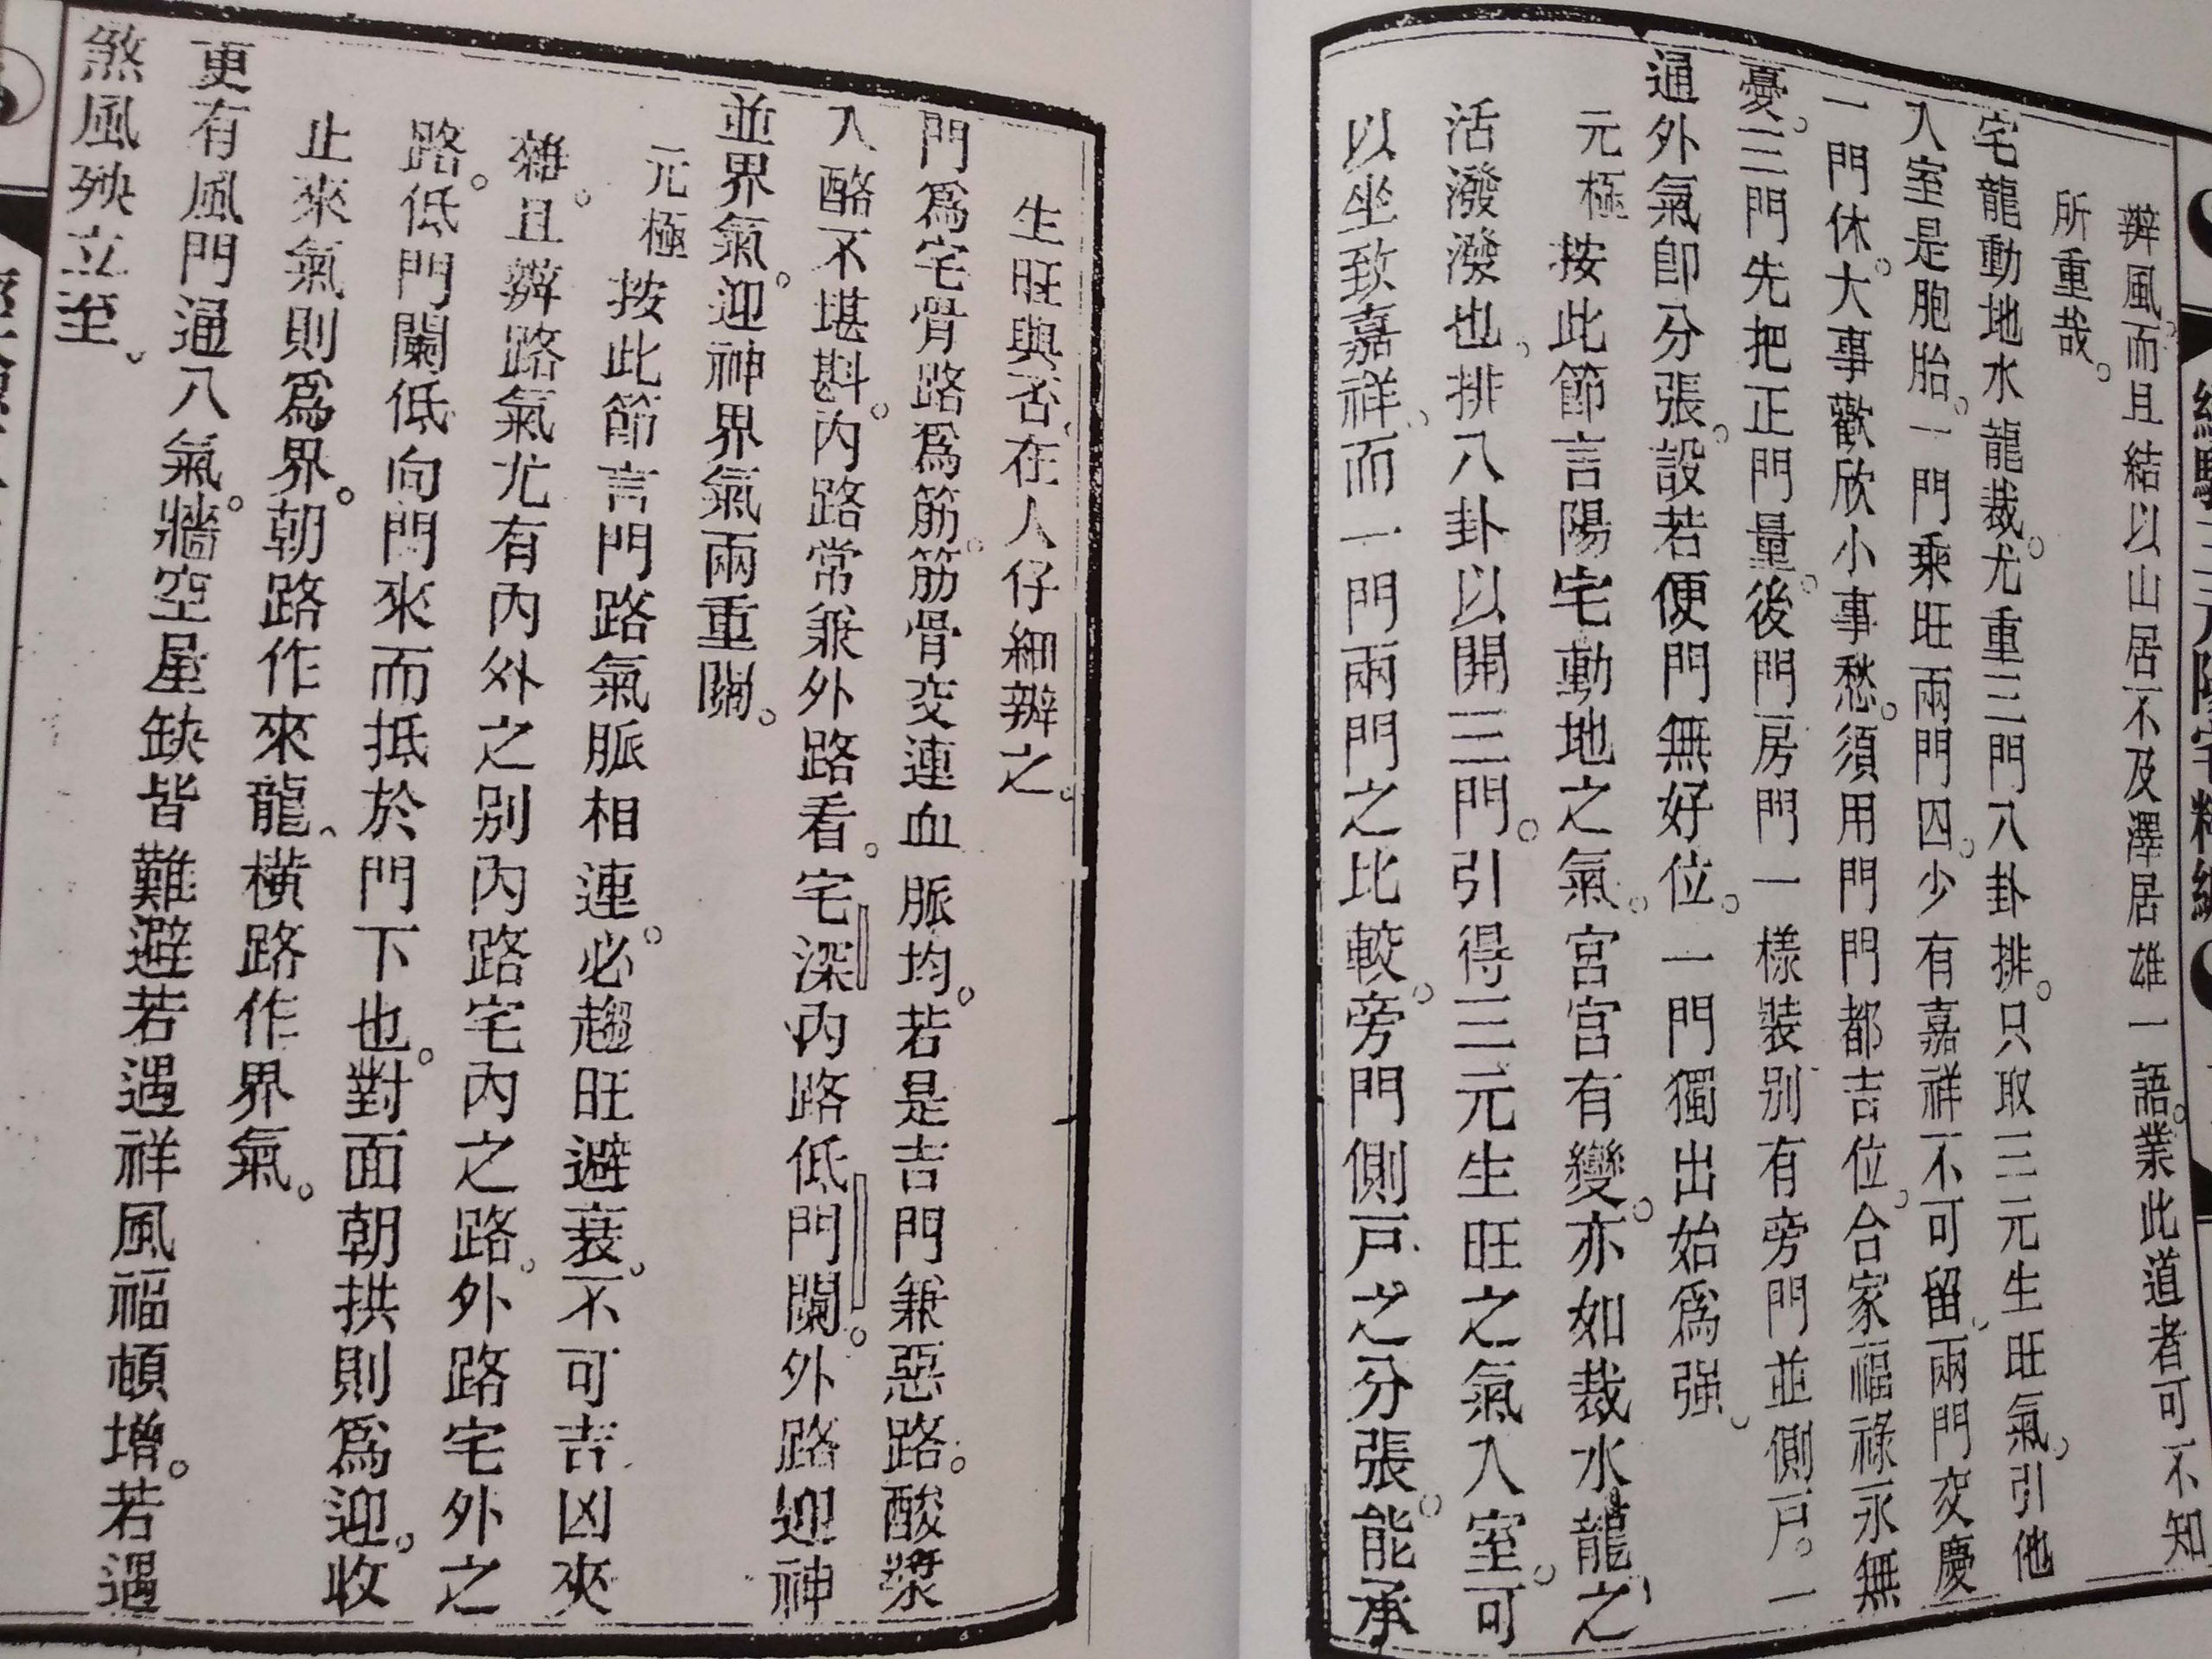 辨風。而且結以山居不及澤居雄一語。業此道者可不知
所重哉。
宅龍動地水龍裁。尤重三門八卦排。只取三元生旺氣。引他
入室是胞胎。一門乘旺兩門囚。少有嘉祥不可留、兩門交慶
一門休。大事歡欣小事愁。須用門門都吉位。合家福祿永無
憂。三門先把正門量。後門房門一樣裝。別有旁門並側戶。一
通外氣卽分張。設若便門無好位。一門獨出始爲强。
元極按此節言陽宅動地之氣。宮宮有變。亦如裁水龍之
活潑潑也、排八卦以開三門。引得三元生旺之氣入室。可
以坐致嘉祥、而一門兩門之比較。旁門側戶之分張。能承
生旺與否、在人仔細辨之。
門爲宅骨路爲筋。筋骨交連血脈均。若是吉門兼惡路。酸漿
入酪不堪斟。內路常兼外路看。宅深內路低門闌。外路迎神
並界氣。迎神界氣兩重關。
元極按此節言門路氣脈相連。必趨旺避衰。不可吉凶夾
雜。且辨路氣尤有內外之別內路宅內之路。外路宅外之
路。低門闌低向門來而抵於門下也。對面朝拱則爲迎。收
止來氣則爲界。朝路作來龍、橫路作界氣。
更有風門通八氣。牆空屋缺皆難避若遇祥風福頓增。若遇
煞風殃立至、